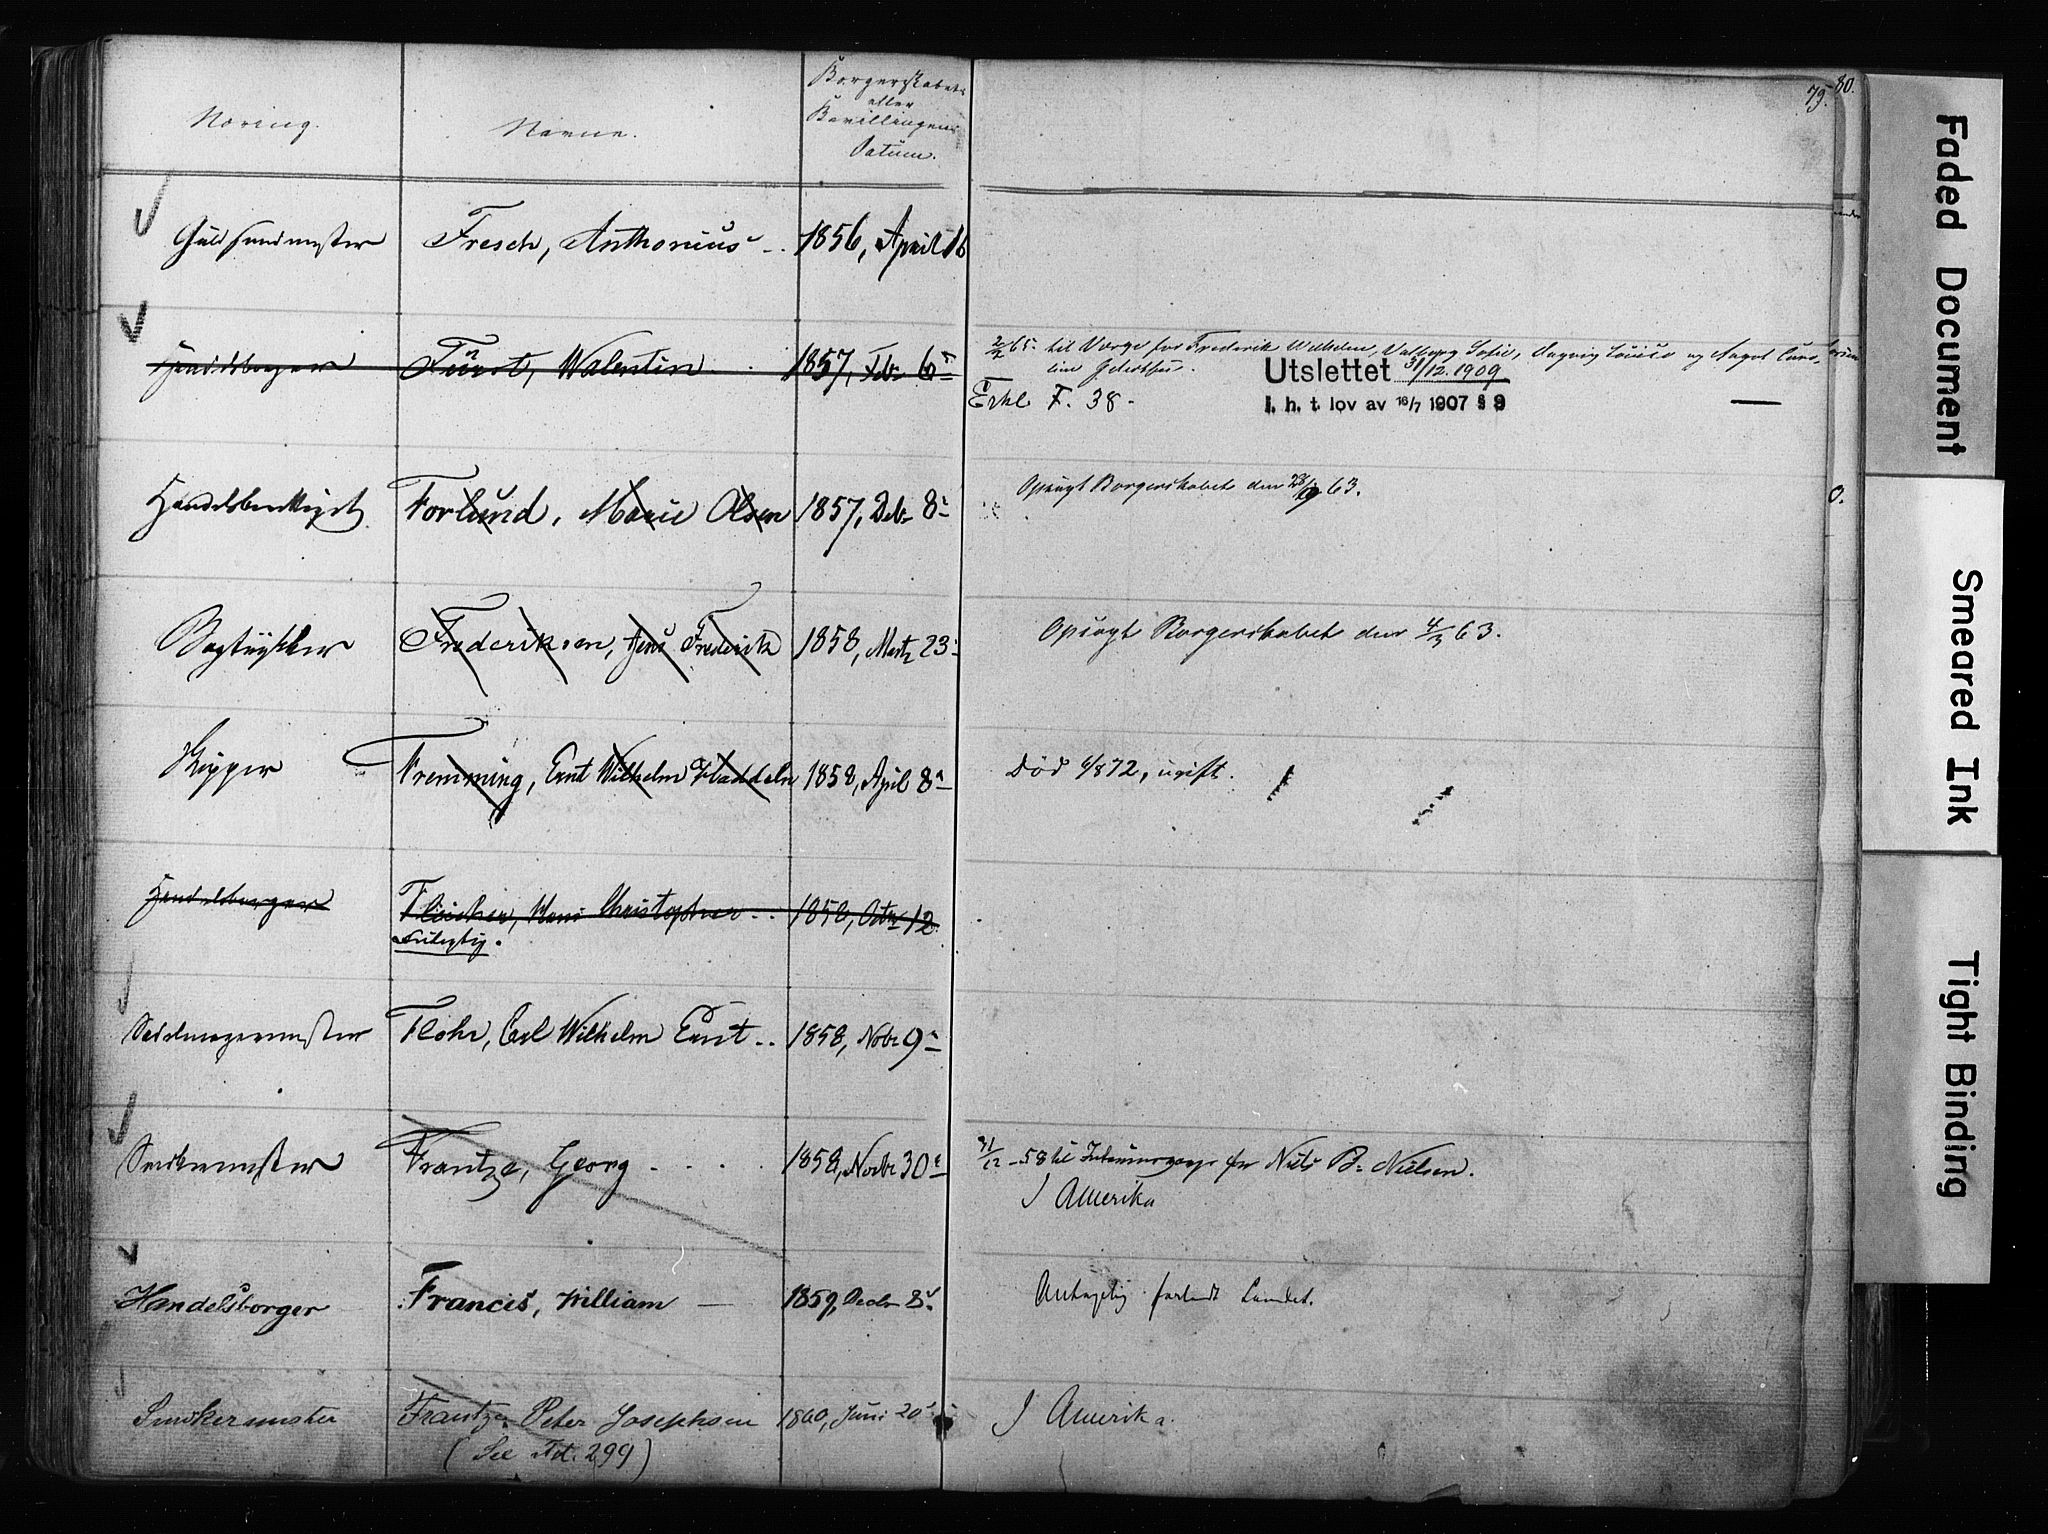 79. 80.
Næring. Navne. Borgerskabets
eller
Bevillingens
Datum.
Guldsmedmester Fresch, Anthonius 1856, April 16
Handelsborger Fürst, Walentin 1857, Feb 6te
2/2 65 til Værge for Frederik Wilhelm, Valborg Sofie, Dagny Louise og Aagot Caro-
line
Utslettet 31/12.1909
Eskl F. 38.
I. h. t. lov av 18/7 1907 § 9
Forlund, Marie Olsen 1857, Deb 8de Opsagt Borgerskabet den 63.
Frederiksen, Jens Frederik 1858, Marts 23 Opsagt Borgerskabet den 4/3 63.
Skipper Fremming, Ernt Wilhelm 1858, April 8de Død 4/8 72, ugift.
Handelsborger Hans Christopher 1858, Octbr 12
Sadelmagermester Flohr, Carl Wilhelm Ernt 1858, Nobr 9de
Smedemester Frantze, Georg 1858, Novbr 30te 58 til for Niels B. Nielsen.
I Amerika
Handelsborger Francis, William 1859, Decbr 8de Antagelig forladt Landet.
Snedkermester Frantze, Peter Josephsen 1860, Juni 20 I Amerika.
(See Fol. 299)
Faded Document
Smeared Ink
Tight Binding